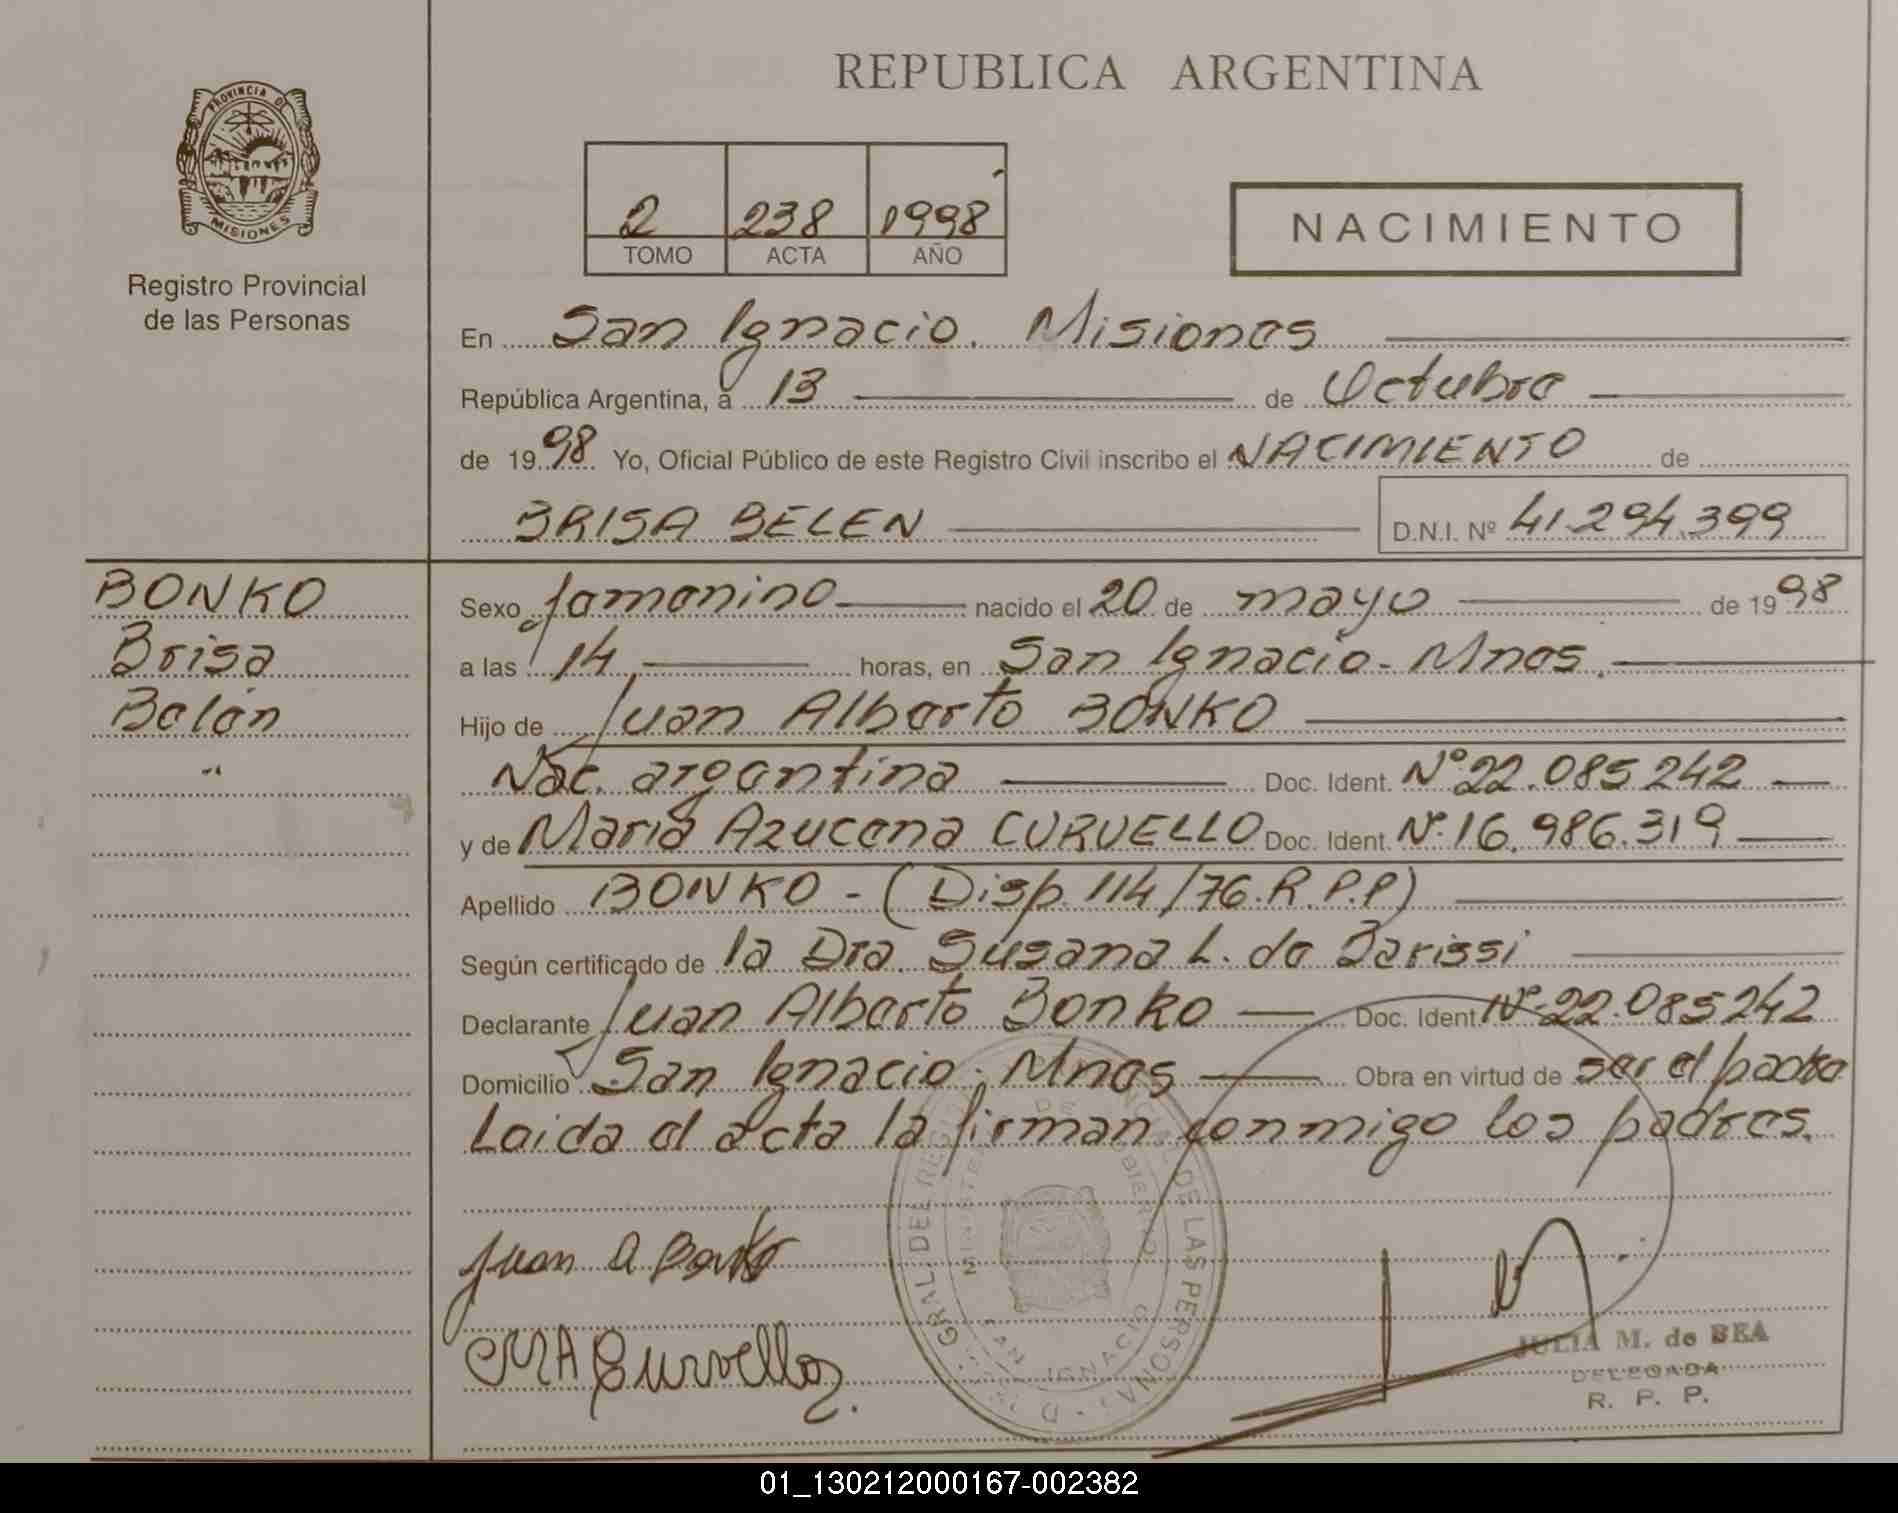 REPUBLICA ARGENTINA
PROVINCIA DE
MISIONES
Registro Provincial
de las Personas
2 238 1998
TOMO ACTA AÑO
NACIMIENTO
En San Ignacio. Misiones
República Argentina, a 13 de Octubre
de 1998 Yo, Oficial Público de este Registro Civil inscribo el NACIMIENTO de
BRISA BELEN D.N.I. Nº 41.294.399
BONKO
Brisa
Belén
Sexo femenino nacido el 20 de mayo de 1998
a las 14 horas, en San Ignacio - Mnes.
Hijo de Juan Alberto BONKO
Nac. argentina Doc. Ident. Nº 22.085242
y de María Azucena CURVELLO Doc. Ident. Nº 16.986.319
Apellido BONKO - (Disp. 114/76.R.P.P)
Según certificado de la Dra. Susana L. de Barissi
Declarante Juan Alberto Bonko Doc. Ident. Nº 22.085242
Domicilio San Ignacio. Mnes Obra en virtud de ser el padre
Leida el acta la firman conmigo los padres.
Juan A Bonko
MA Curvello
MINISTERIO DE GOBIERNO
GRAL. DEL REGISTRO DE LAS PERSONAS
SAN IGNACIO
JULIA M. de BEA
DELEGADA
R. P. P.
01_130212000167-002382